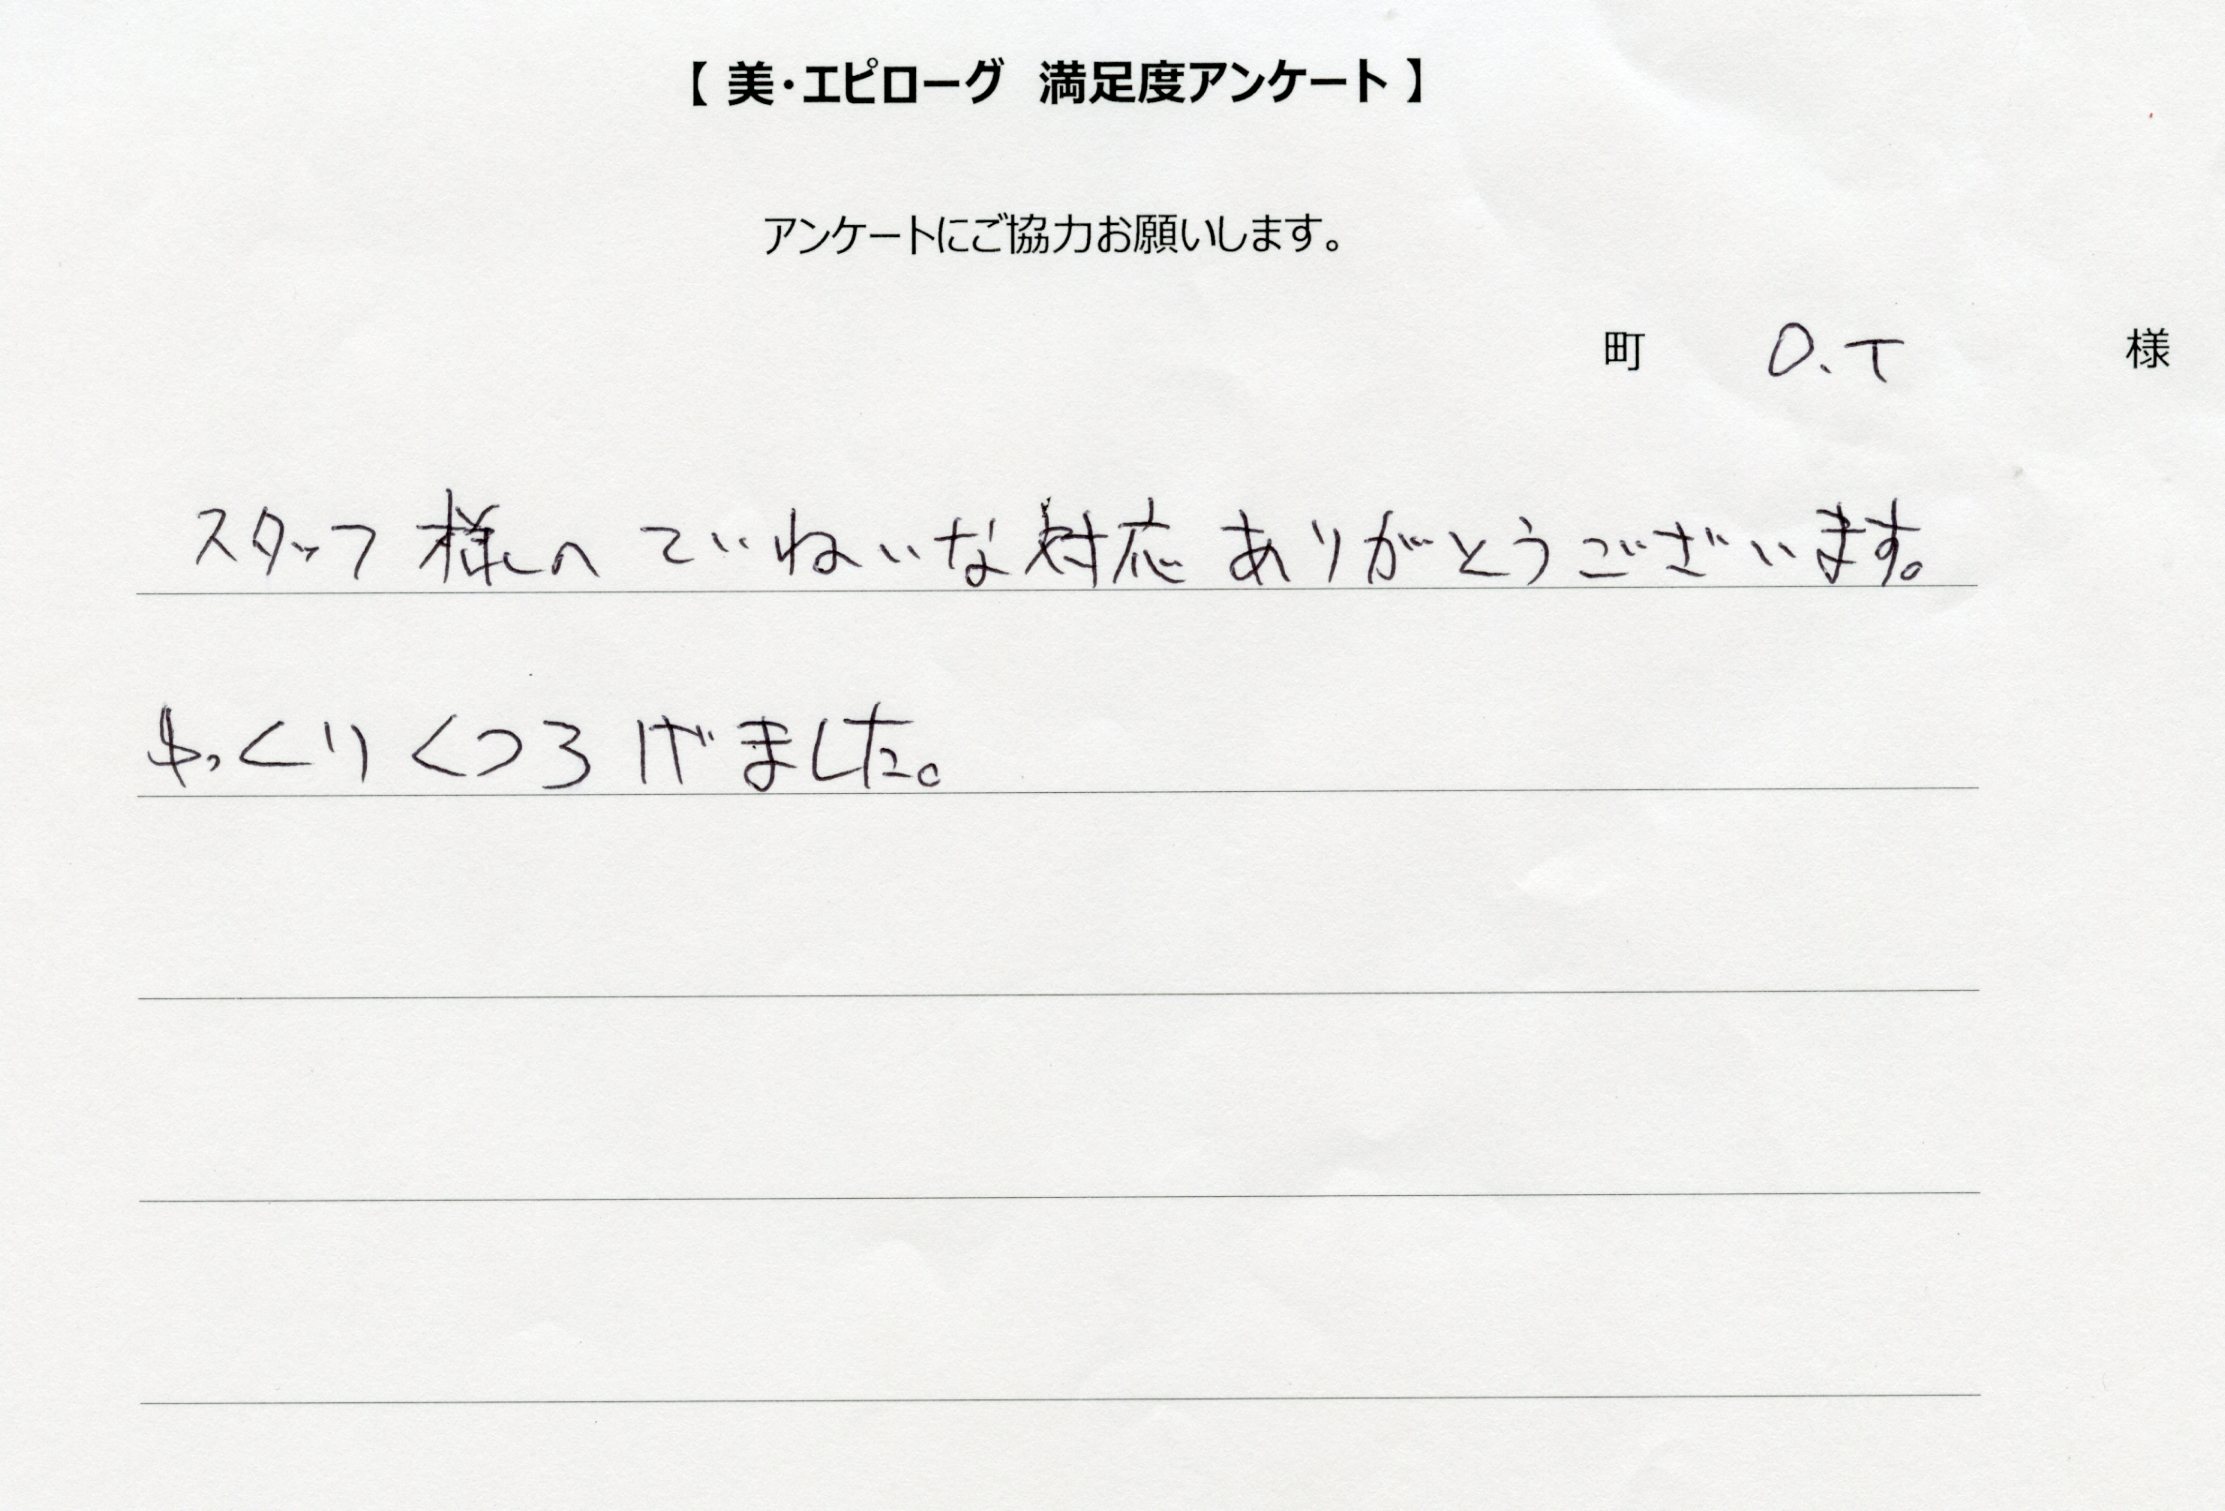 【 美・エピローグ 満足度アンケート 】
アンケートにご協力お願いします。
町 O.T 様
スタッフ様へ ていねいな対応 ありがとうございます。
ゆっくりくつろげました。